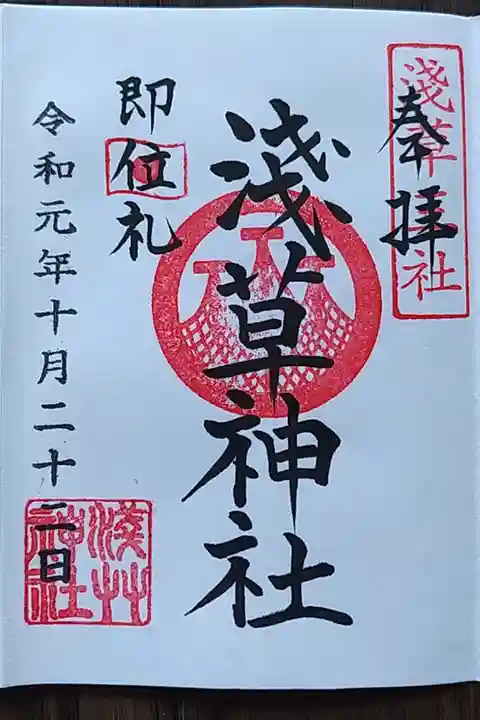 奉拝
淺草神社
浅草神社
即位礼
令和元年十月二十二日
淺艸神社